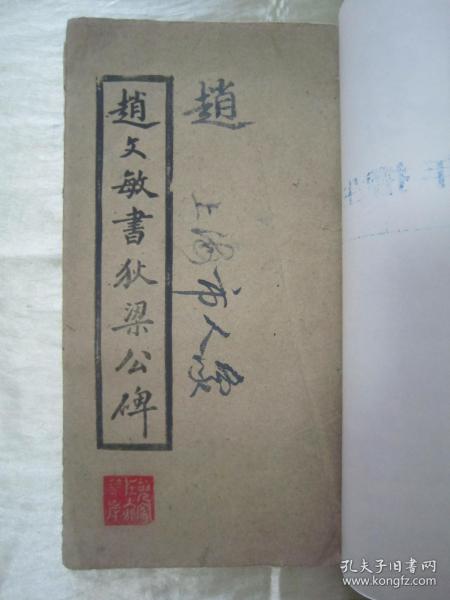 趙文敏書狄梁公碑
趙
上海市人
孔夫子旧书网
www.kongfz.com